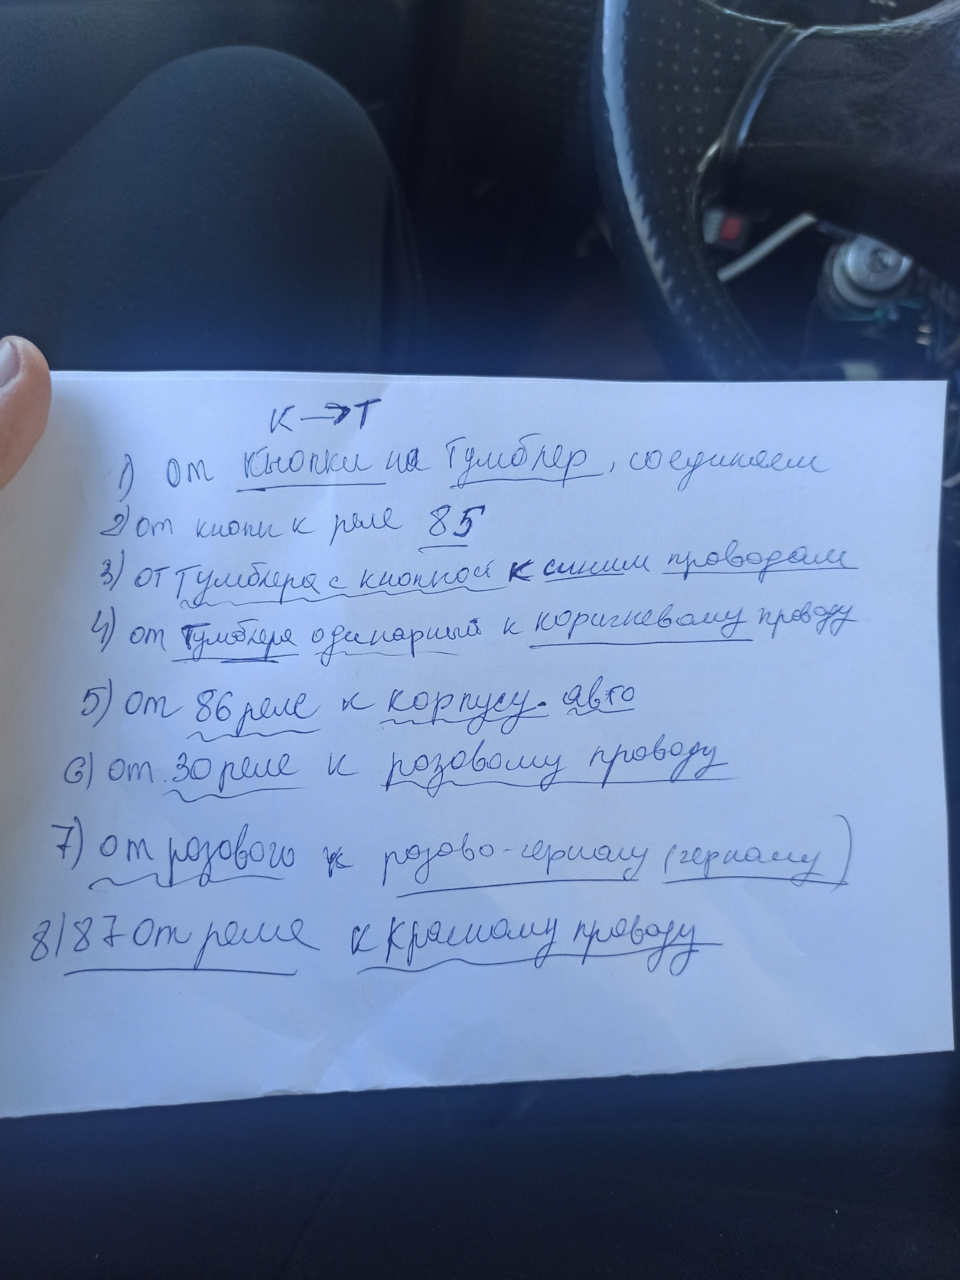 К → Т
1) от кнопки на Тумблер, соединяем
2) от кнопи к реле 85
3) от Тумблера с кнопкой к синим проводам
4) от Тумблера одинарный к коричневому проводу
5) от 86 реле к корпусу. авто
6) от 30 реле к розовому проводу
7) от розового к розово-черному (черному)
8) 87 от реле к красному проводу